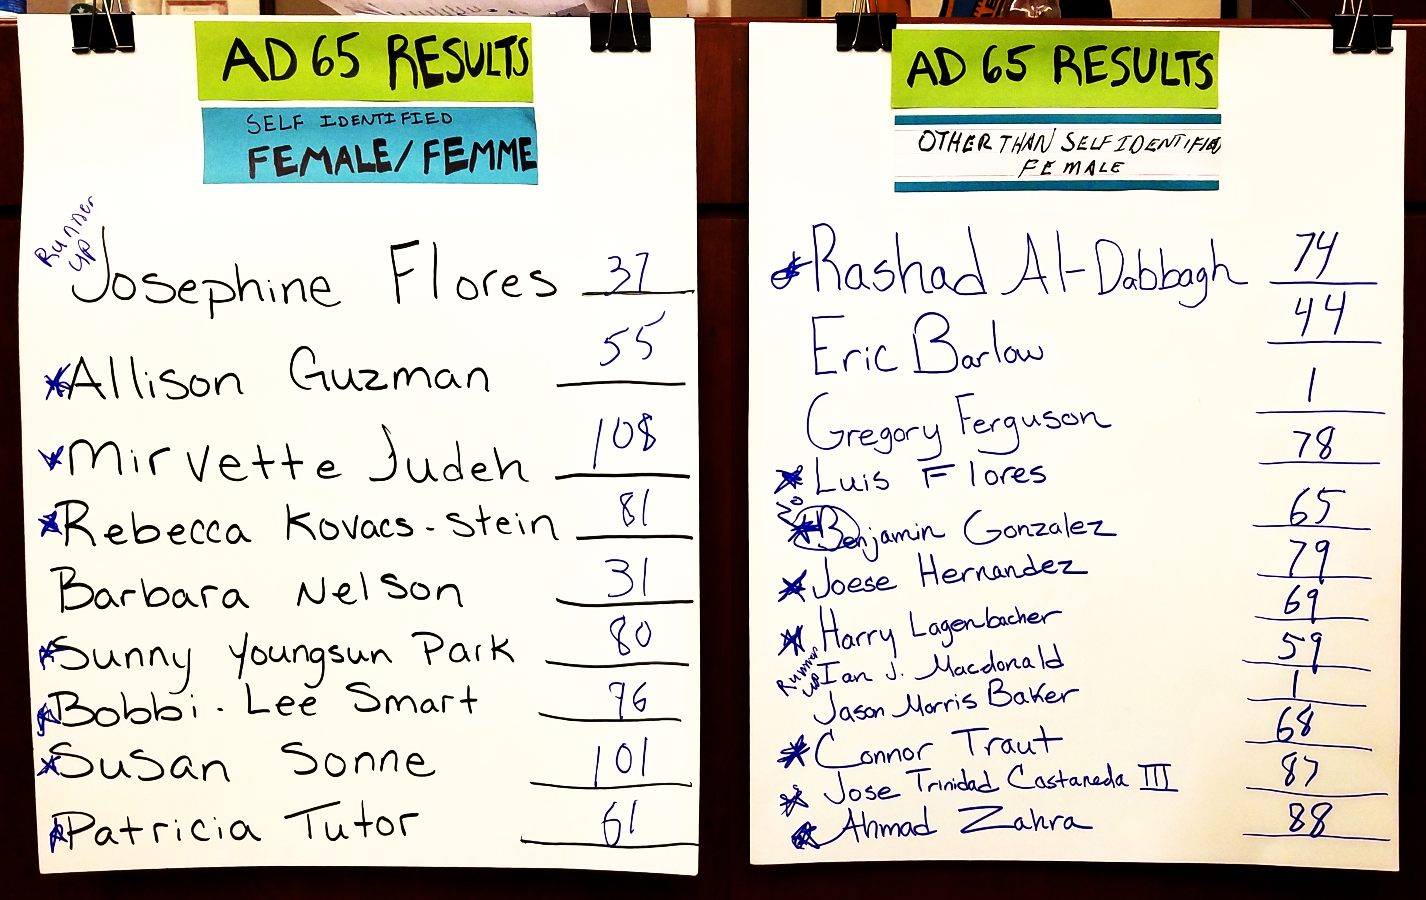 AD 65 RESULTS
SELF IDENTIFIED
FEMALE/FEMME
Runner
up
Josephine Flores 37
Allison Guzman 55
Mirvette Judeh 108
Rebecca Kovacs-Stein 81
Barbara Nelson 31
Sunny Youngsun Park 80
Bobbi-Lee Smart 76
Susan Sonne 101
Patricia Tutor 61
AD 65 RESULTS
OTHER THAN SELF IDENTIFIED
FEMALE
Rashad Al-Dabbagh 74
Eric Barlow 44
Gregory Ferguson 1
Luis Flores 78
No
Benjamin Gonzalez 65
Joese Hernandez 79
Harry Lagenbacher 69
Runner
up
Ian J. Macdonald 59
Jason Morris Baker 1
Connor Traut 68
Jose Trinidad Castaneda III 87
Ahmad Zahra 88